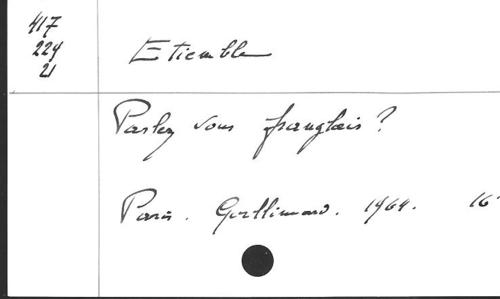 417
224
21
Etiemble
Parlez vous franglais ?
Paris. Gallimard. 1964. 16°